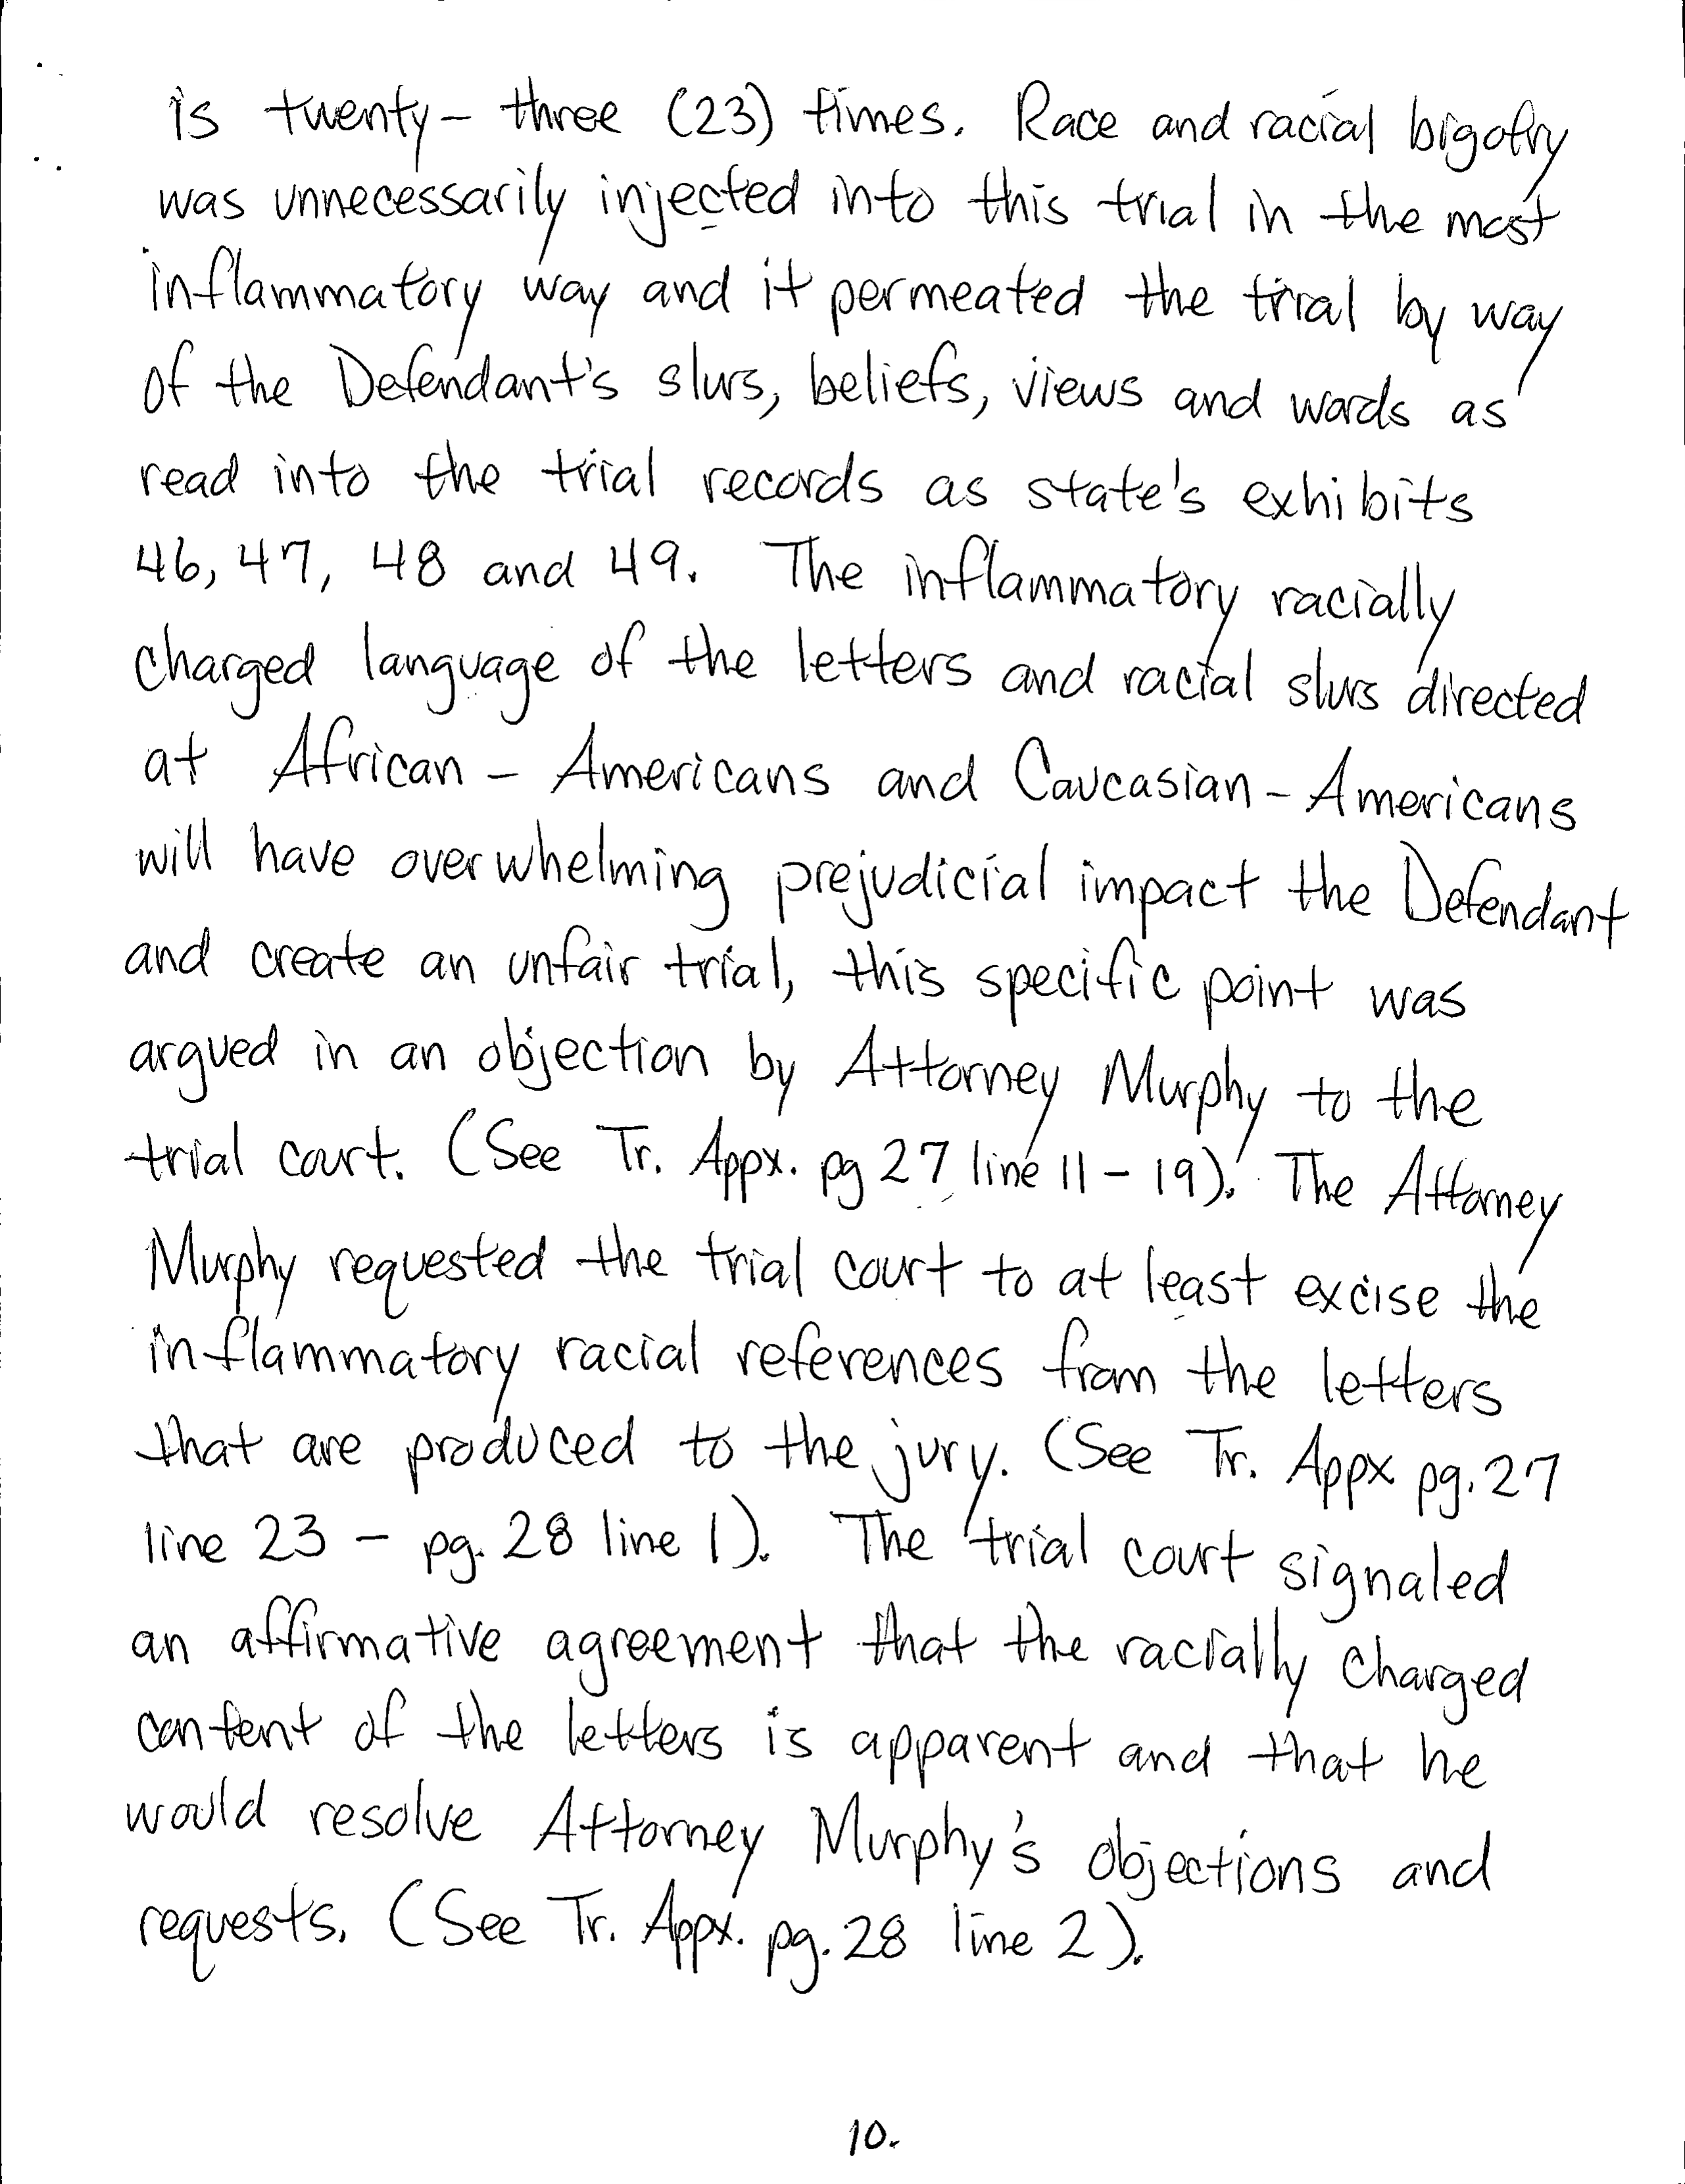 is twenty- three (23) times. Race and racial bigotry
was unnecessarily injected into this trial in the most
inflammatory way and it permeated the trial by way
of the Defendant's slurs, beliefs, views and words as
read into the trial records as state's exhibits
46, 47, 48 and 49. The inflammatory racially
charged language of the letters and racial slurs directed
at African - Americans and Caucasian - Americans
will have overwhelming prejudicial impact the Defendant
and create an unfair trial, this specific point was
argued in an objection by Attorney Murphy to the
trial court. (See Tr. Appx. pg 27 line 11 - 19). The Attorney
Murphy requested the trial court to at least excise the
inflammatory racial references from the letters
that are produced to the jury. (See Tr. Appx pg. 27
line 23 - pg. 28 line 1). The trial court signaled
an affirmative agreement that the racially charged
content of the letters is apparent and that he
would resolve Attorney Murphy's objections and
requests. (See Tr. Appx. pg. 28 line 2).
10.